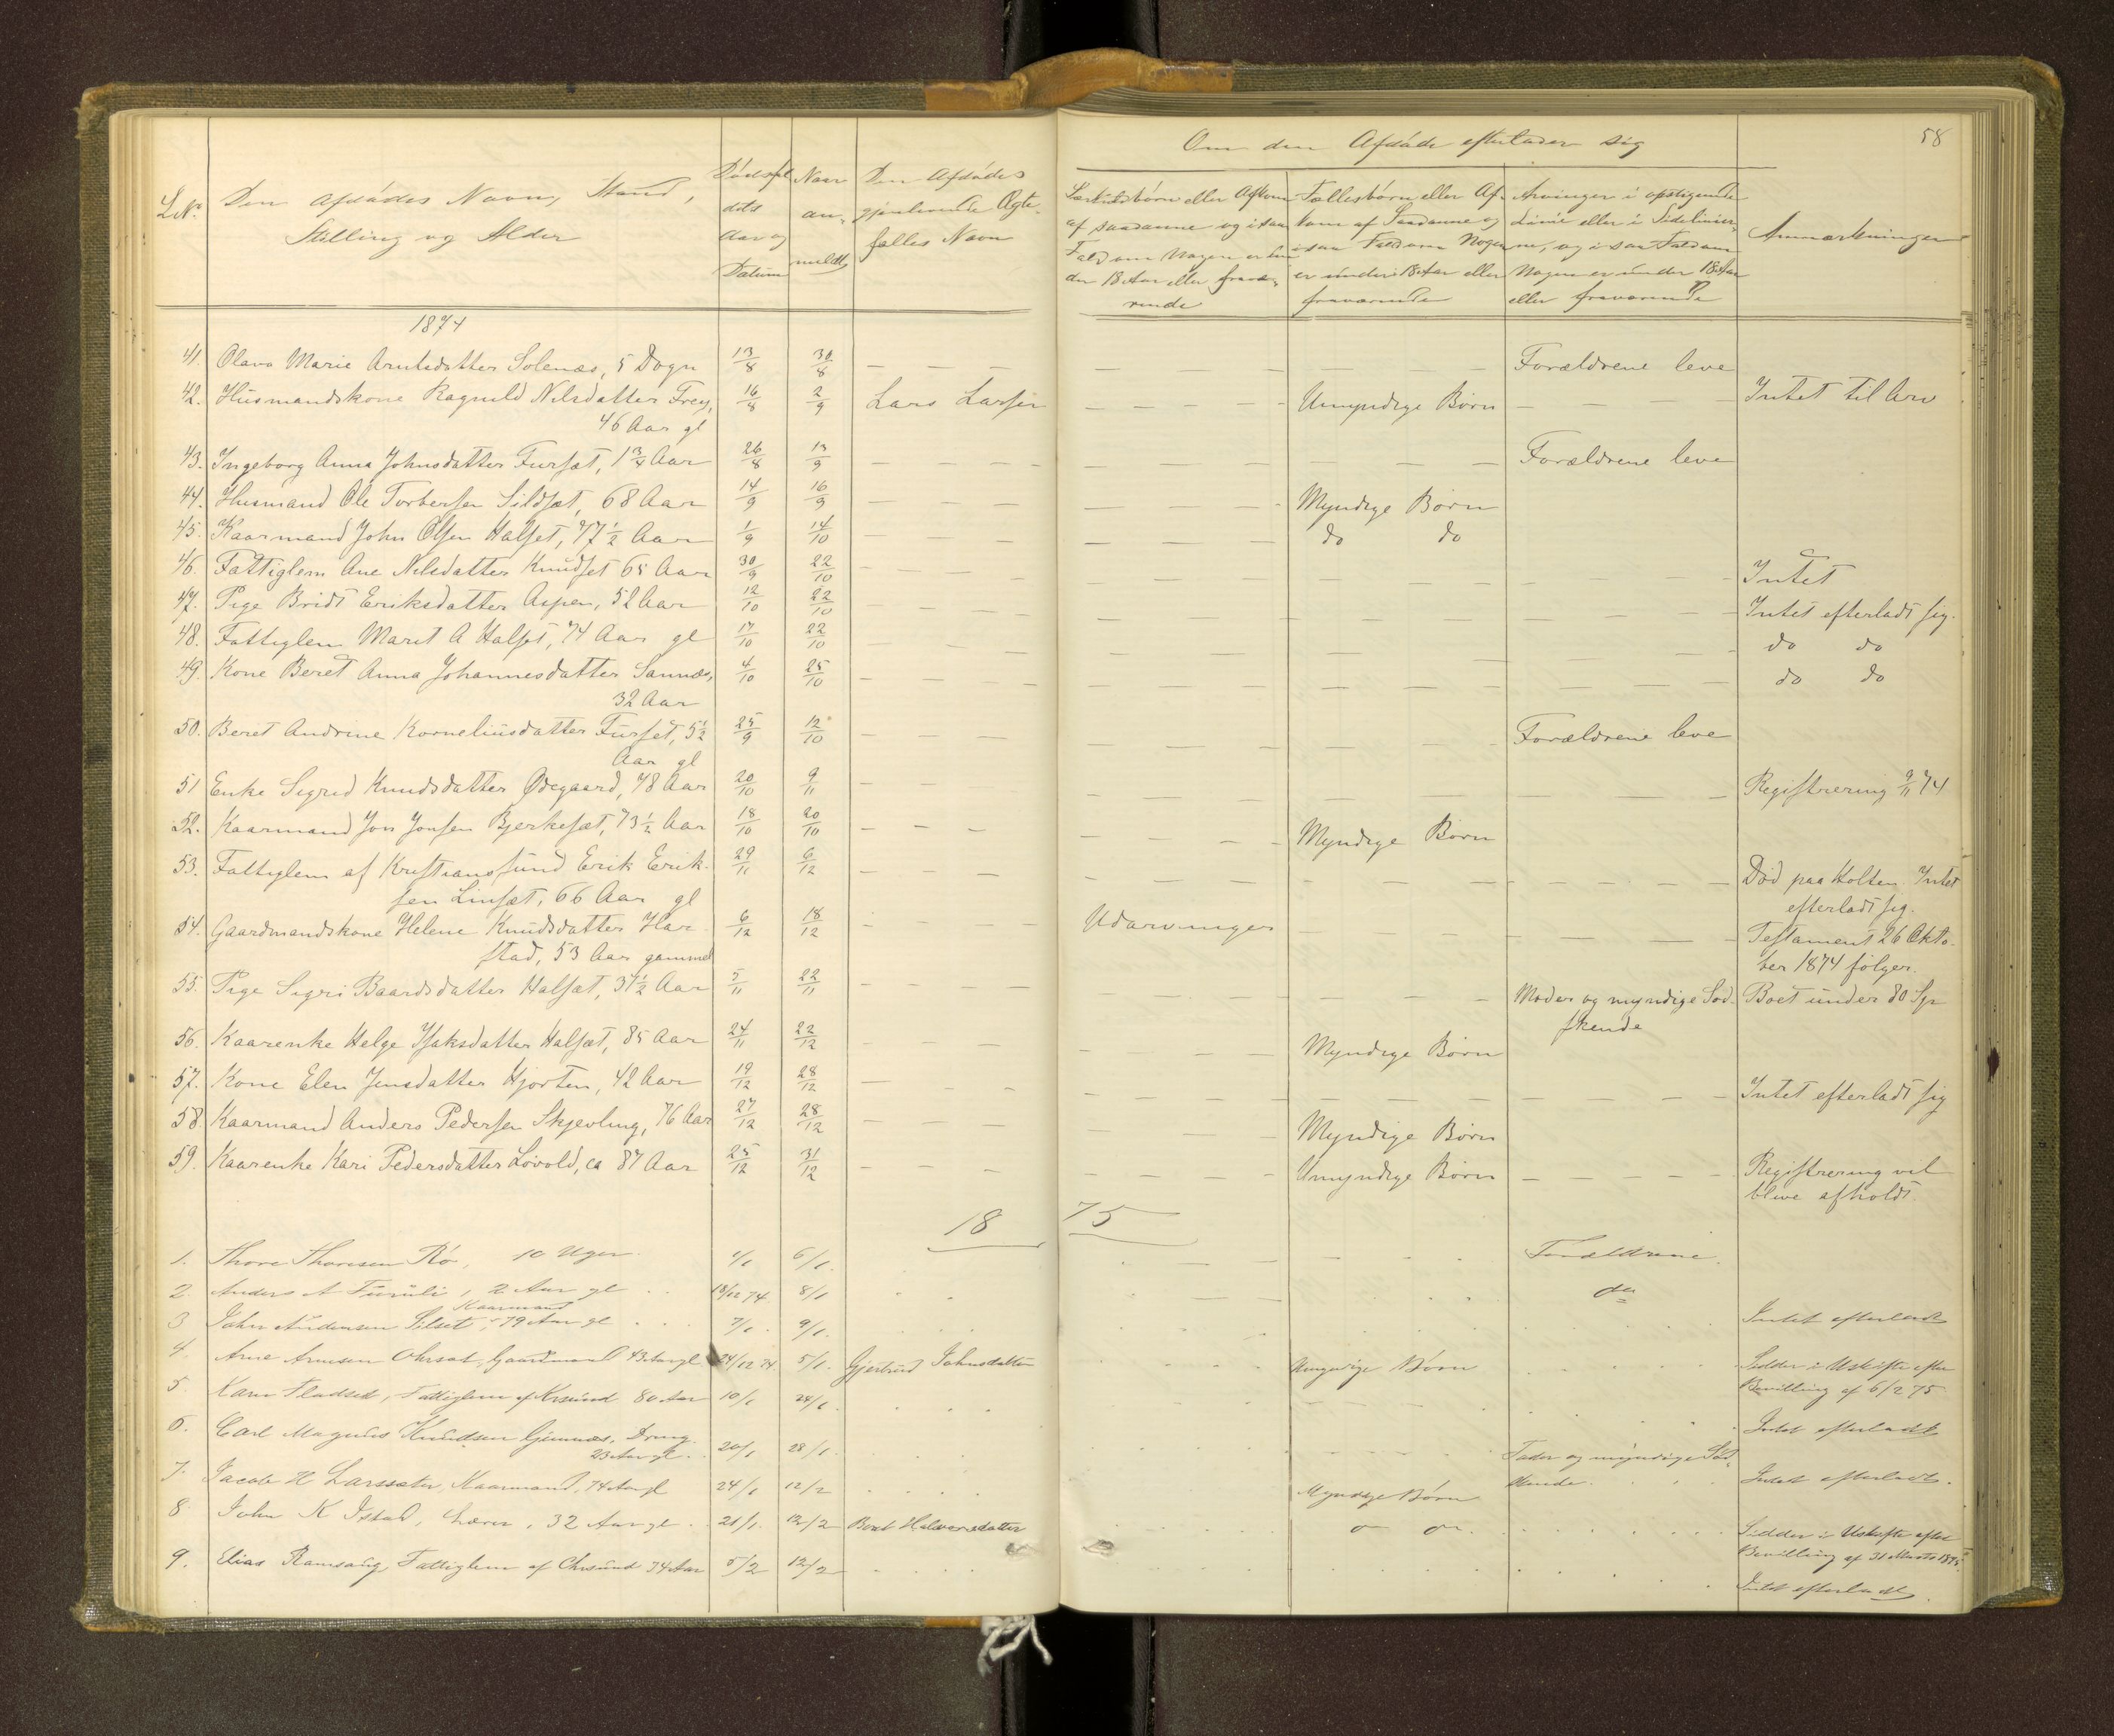 58
Om den Afdøde efterlader sig
L No. Den afdødes Navn, Stand, Stilling og Alder
Dødsfaldets Aar og Datum
Naar anmeldt
Den Afdødes gjenlevende Ægtefælles Navn
Særkuldsbørn eller Afkom af saadanne og i saa Fald om Nogen er under 18 Aar eller fraværende
Fællesbørn eller Afkom af Saadanne og i saa Fald om Nogen er under 18 Aar eller fraværende
Arvinger i opstigende Linie eller i Sidelinierne, og i saa Fald om Nogen er under 18 Aar eller fraværende
Anmærkninger
1874
41. Olava Marie Arntsdatter Solenæs, 5 Døgn 13/8 30/8 Forældrene leve
42. Husmandskone Ragnild Nilsdatter Frey, 16/8 2/9 Lars Larsen Umyndige Børn Intet til Arv
46 Aar gl
43. Ingeborg Anna Johnsdatter Furset, 1 3/4 Aar 26/8 13/9 Forældrene leve
44. Husmand Ole Torbersen Sildset, 68 Aar 14/9 16/9 Myndige Børn
45. Kaarmand John Olsen Halset, 77 1/2 Aar 1/9 14/10 do do
46. Fattiglem Ane Nilsdatter Knudset 65 Aar 30/9 22/10 Intet
47. Pige Bridt Eriksdatter Aspen, 52 Aar 12/10 22/10 Intet efterladt sig.
48. Fattiglem Marit A Halset, 74 Aar gl 17/10 22/10 do do
49. Kone Beret Anna Johannesdatter Sannæs, 4/10 25/10 do do
32 Aar
50. Beret Andrine Korneliusdatter Furset, 5 1/2 25/9 12/10 Forældrene leve
Aar gl
51 Enke Sigrid Knudsdatter Ødegaard, 78 Aar 20/10 9/11 Registrering 9/11 74
52. Kaarmand Jon Jonsen Bjerkeset, 73 1/2 Aar 18/10 20/10 Myndige Børn
53. Fattiglem af Kristianssund Erik Erik- 29/11 6/12 Død paa Holten Intet
sen Linset, 66 Aar gl efterladt sig.
54. Gaardmandskone Helene Knudsdatter Har- 6/12 18/12 Udarvinger Testament 26 Okto-
stad, 53 Aar gammel ber 1874 følger.
55. Pige Sigri Baardsdatter Halset, 37 1/2 Aar 5/11 22/11 Moder og myndige Sød- Boet under 80 Spr
skende
56. Kaarenke Helge Isaksdatter Halset, 85 Aar 24/11 22/12 Myndige Børn
57. Kone Elen Jensdatter Hjorten, 42 Aar 19/12 28/12 Intet efterladt sig
58. Kaarmand Anders Pedersen Skjevling, 76 Aar 27/12 28/12 Myndige Børn
59. Kaarenke Kari Pedersdatter Løvold, ca 87 Aar 25/12 31/12 Umyndige Børn Registrering vil
blive afholdt.
1875
1. Thore Thoresen Rø, 10 Uger 1/1 6/1. Forældrene.
2. Anders A Furuli, 2 Aar gl 18/12 74 8/1 do
Kaarmand
3 John Andersen Silset, 79 Aar gl 7/1. 9/1. Intet efterladt
4. Arne Arnesen Ohrset, Gaardmand 43 Aar gl 24/12 74 5/1. Gjertrud Johnsdatter Umyndige Børn Sidder i Uskifte efter
Bevilling af 6/2 75
5. Karen Fladset, Fattiglem af Krsund 80 Aar 10/1 24/1. Intet efterladt
6. Carl Magnus Knudsen Gimnæs, Dreng 20/1 28/1. Fader og myndige Sød-
23 Aar gl. skende. Intet efterladt.
7. Jacob H Larssæter, Kaarmand, 74 Aar gl 24/1 12/2 Myndige Børn
8 John K Istad, Lærer, 32 Aar gl. 21/1. 12/2 Beret Halvorsdatter Sidder i Uskifte efter
Bevilling af 31 Marts 1875.
9. Elias Ramsaug, Fattiglem af Chrsund 74 Aar 5/2 12/2 Intet efterladt.